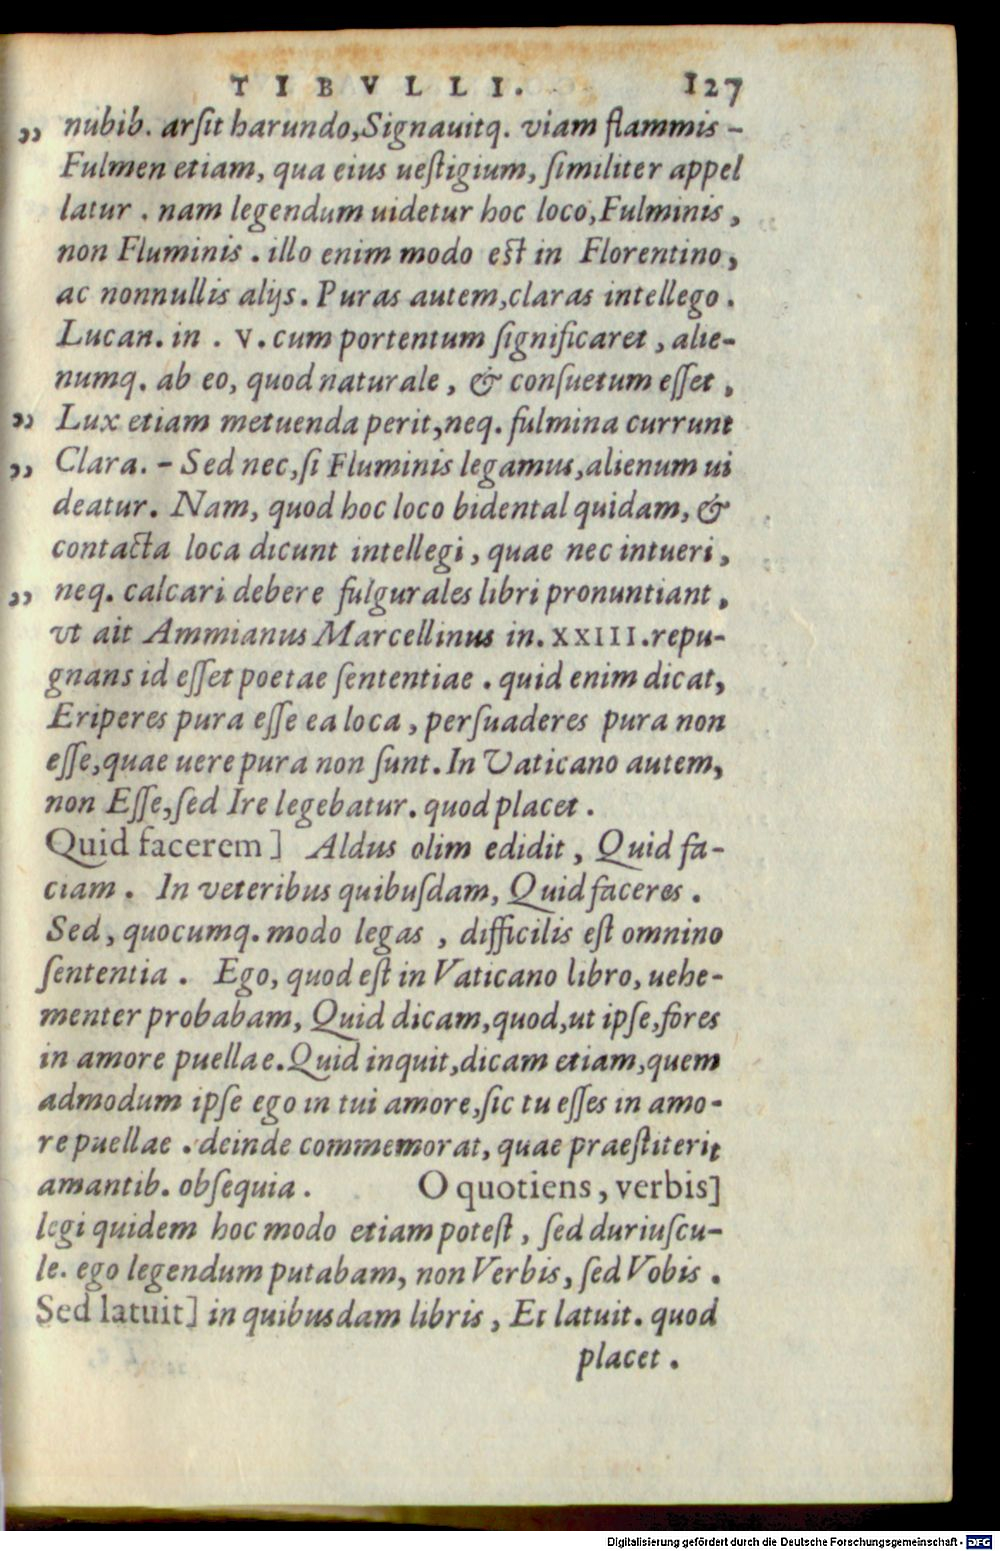 TIBVLLI. 127
,, nubib. arſit harundo, Signauitq. viam flammis –
Fulmen etiam, qua eius ueſtigium, ſimiliter appel
latur . nam legendum uidetur hoc loco, Fulminis ,
non Fluminis . illo enim modo eſt in Florentino,
ac nonnullis alijs . Puras autem, claras intellego .
Lucan. in . V. cum portentum ſignificaret , alie-
numq. ab eo, quod naturale , & conſuetum eſſet ,
,, Lux etiam metuenda perit, neq. fulmina currunt
,, Clara. – Sed nec, ſi Fluminis legamus, alienum ui
deatur. Nam, quod hoc loco bidental quidam, &
contacta loca dicunt intellegi , quae nec intueri ,
,, neq. calcari debere fulgurales libri pronuntiant ,
vt ait Ammianus Marcellinus in. XXIII. repu-
gnans id eſſet poetae ſententiae . quid enim dicat,
Eriperes pura eſſe ea loca , perſuaderes pura non
eſſe, quae uere pura non ſunt. In Vaticano autem,
non Eſſe, ſed Ire legebatur. quod placet .
Quid facerem] Aldus olim edidit , Quid fa-
ciam . In veteribus quibuſdam, Quid faceres .
Sed, quocumq. modo legas , difficilis eſt omnino
ſententia . Ego, quod eſt in Vaticano libro, uehe-
menter probabam, Quid dicam, quod, ut ipſe, fores
in amore puellae. Quid inquit, dicam etiam, quem
admodum ipſe ego in tui amore, ſic tu eſſes in amo-
re puellae . deinde commemorat, quae praeſtiterit
amantib. obſequia . O quotiens, verbis]
legi quidem hoc modo etiam poteſt , ſed duriuſcu-
le. ego legendum putabam, non Verbis, ſed Vobis .
Sed latuit] in quibusdam libris , Et latuit. quod
placet .
Digitalisierung gefördert durch die Deutsche Forschungsgemeinschaft - DFG